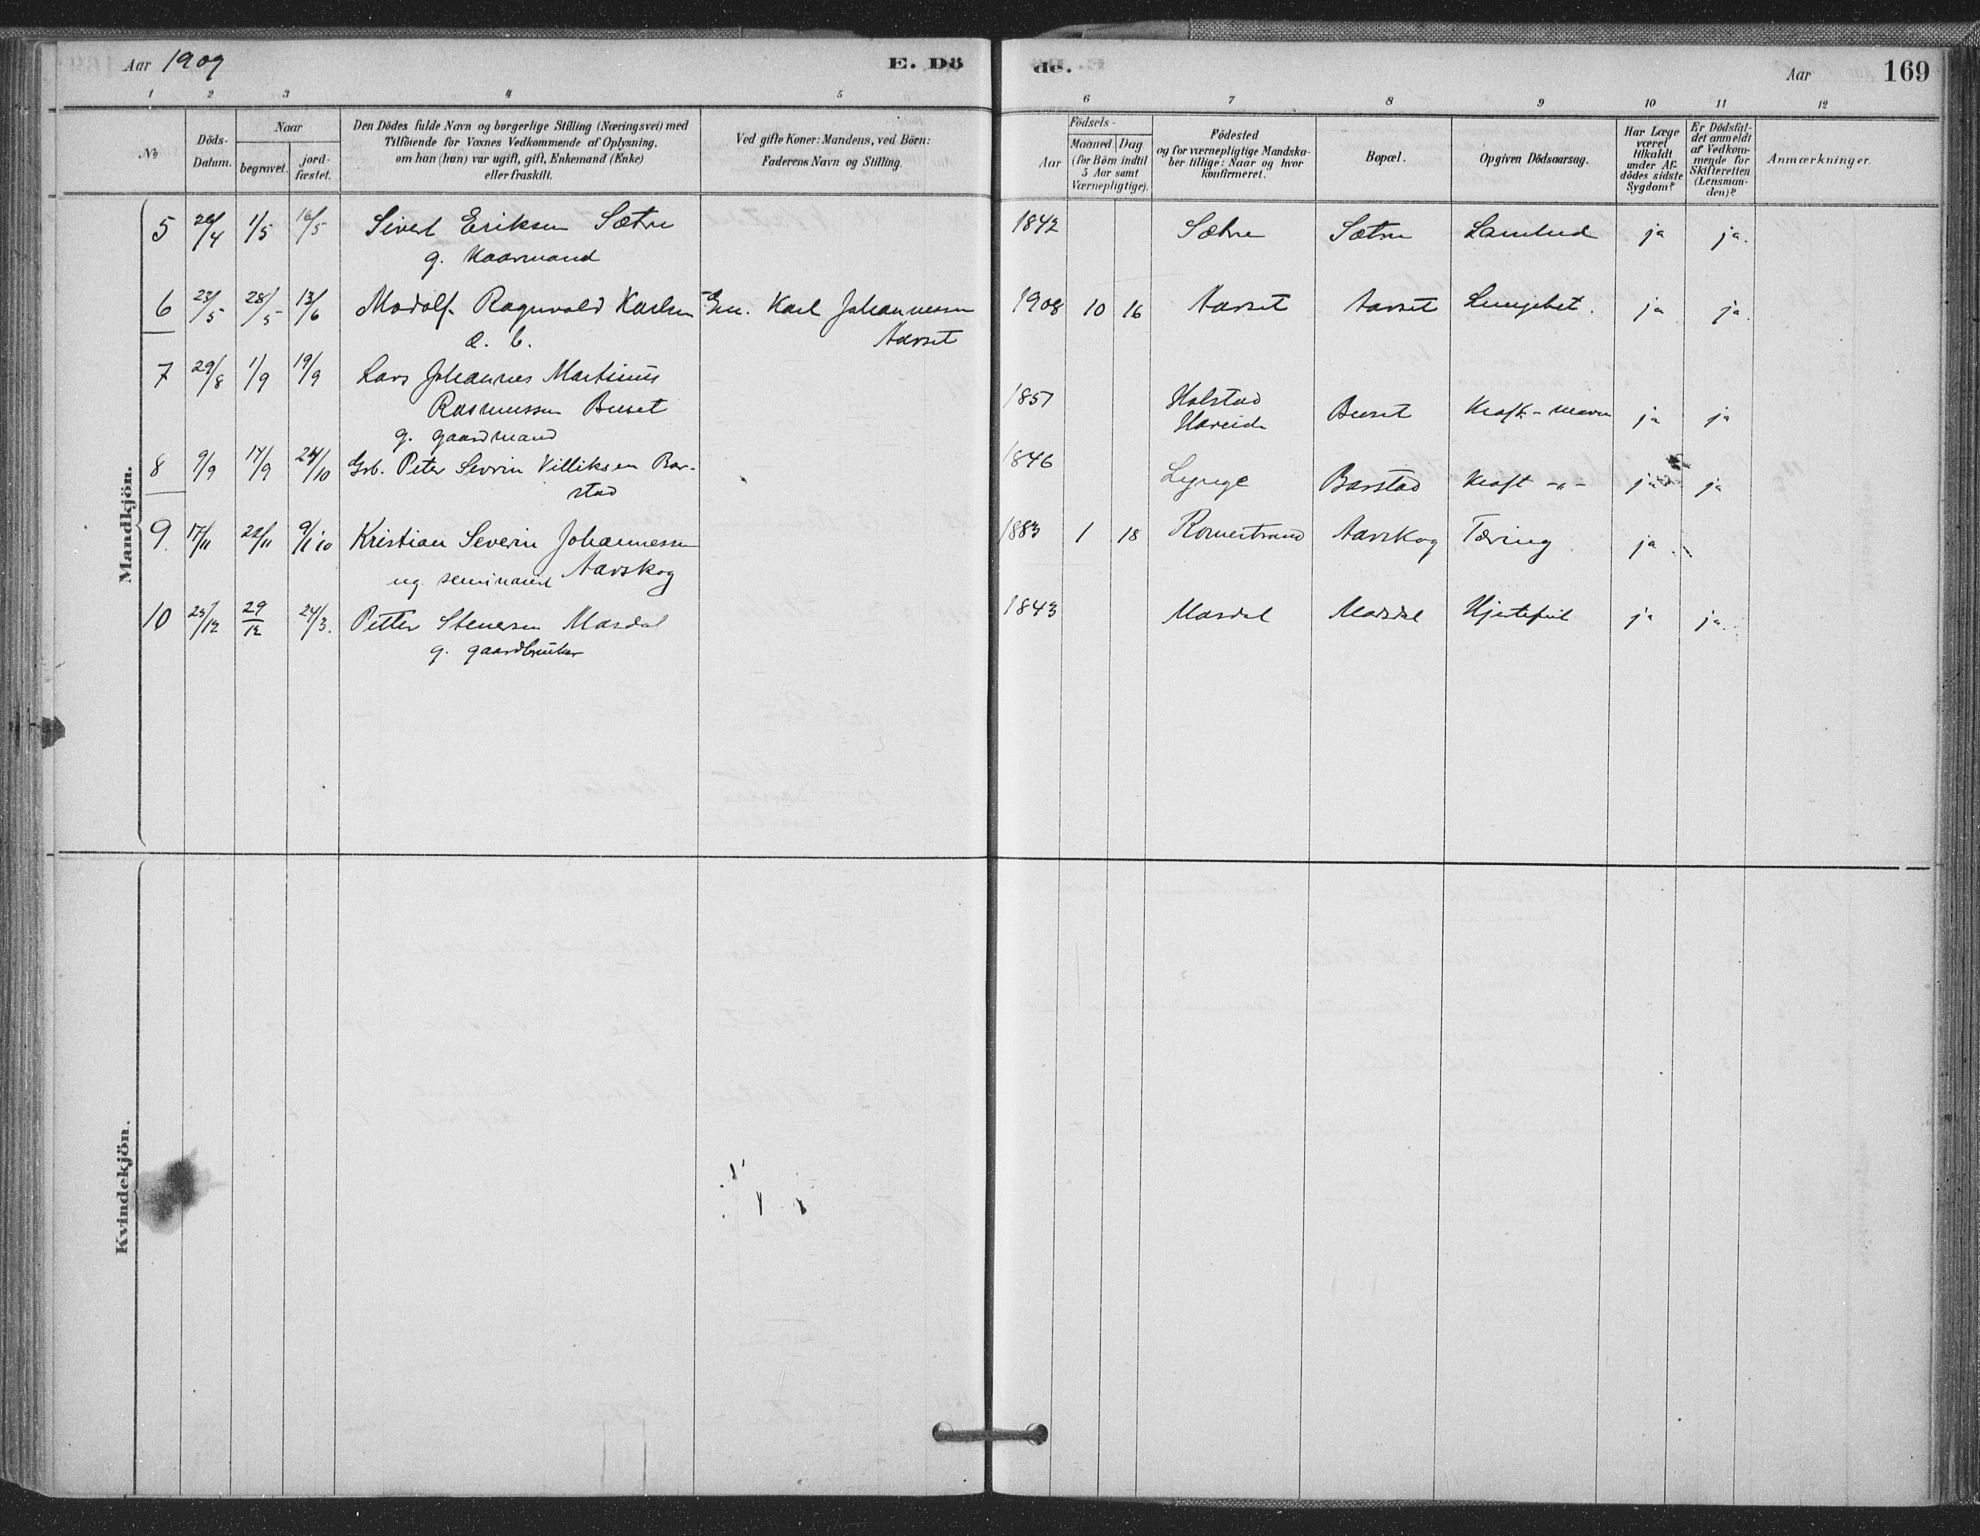 Aar 1909
E. Dö
de.
Aar
169
1 2 3 4 5 6 7 8 9 10 11 12
No
Döds-
Datum.
Naar
begravet.
jord-
fæstet.
Den Dödes fulde Navn og borgerlige Stilling (Næringsvei) med
Tilföiende for Voxnes Vedkommende af Oplysning,
om han (hun) var ugift, gift, Enkemand (Enke)
eller fraskilt.
Ved gifte Koner: Mandens, ved Börn:
Faderens Navn og Stilling.
Födsels-
Aar
Maaned.
Dag
(for Börn indtil
5 Aar samt
Værnepligtige).
Födested
og for værnepligtige Mandska-
ber tillige: Naar og hvor
konfirmeret.
Bopæl.
Opgiven Dödsaarsag.
Har Læge
været
tilkaldt
under Af-
dödes sidste
Sygdom?
Er Dödsfal-
det anmeldt
af Vedkom-
mende for
Skifteretten
(Lensman-
den)?
Anmærkninger.
Mandkjön.
5 26/4 1/5 16/5 Sivert Eriksen Sætre 1842 Sætre Sætre ja ja.
g. Kaarmand
6 23/5 28/5 13/6 Modolf Ragnvald Karlsen Gm. Karl Johannessen 1908 10 16 Aarset Aarset Lungebet. ja ja.
Aarset
7 29/8 1/9 19/9 Lars Johannes Martinus
Rasmussen Buset 1857 Holstad
Hareide Buset Kræft - mave ja ja
g. gaardmand
8 9/9 17/9 24/10 Grb. Peter Sevrin Villiksen Bar-
stad 1846 Lynge Barstad Kræft -"- ja ja
9. 17/11 22/11 9/1 10 Kristian Severin Johannessen 1883 1 18 Aarskog Tæring ja
Aarskog
ug. seminarist
10 23/12 29/12 24/3. Petter Stenersen Masdal 1843 Masdal Masdal Hjertefeil ja ja.
g. gaardbruker
Kvindekjön.